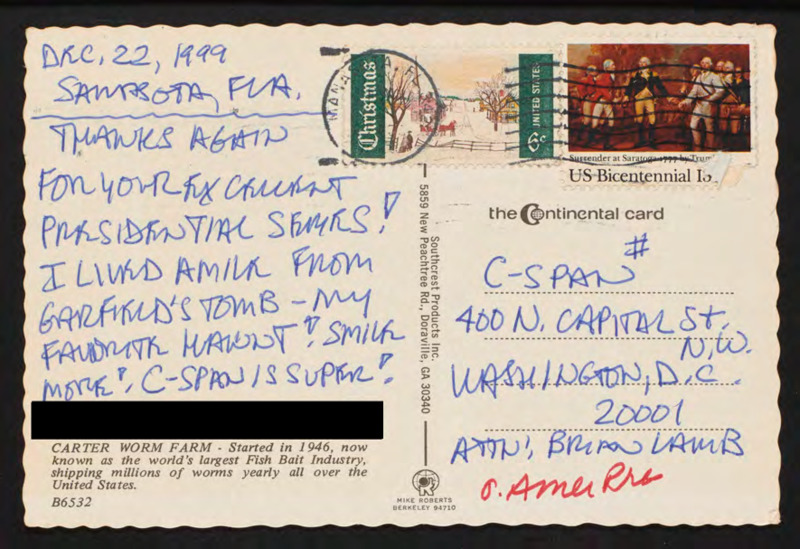 DEC. 22, 1999
SARASOTA, FLA.
THANKS AGAIN
FOR YOUR EXCELLENT
PRESIDENTIAL SERIES!
I LIVED A MILE FROM
GARFIELD'S TOMB - MY
FAVORITE HAUNT! SMILE
MORE! C-SPAN IS SUPER!
CARTER WORM FARM - Started in 1946, now
known as the world's largest Fish Bait Industry,
shipping millions of worms yearly all over the
United States.
B6532
Southcrest Products Inc.
5859 New Peachtree Rd., Doraville, GA 30340
MIKE ROBERTS
BERKELEY 94710
MANA
Christmas
6c
UNITED STATES
Surrender at Saratoga 1777 by Trum
US Bicentennial 13
the Continental card
C-SPAN #
400 N. CAPITAL St.
N.W.
WASHINGTON, D.C.
20001
ATTN! BRIAN LAMB